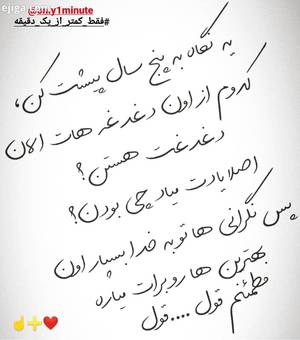 ejiga.com
@only1minute
#فقط_کمتر_از_یک_دقیقه
یه نگاه به پنج سال پیشت کن،
کدوم از اون دغدغه هات الان
دغدغت هستن؟
اصلا یادت میاد چی بودن؟
پس نگرانی ها تو به خدا بسپار اون
بهترین ها رو برات میاره
مطمئنم قول ....قول